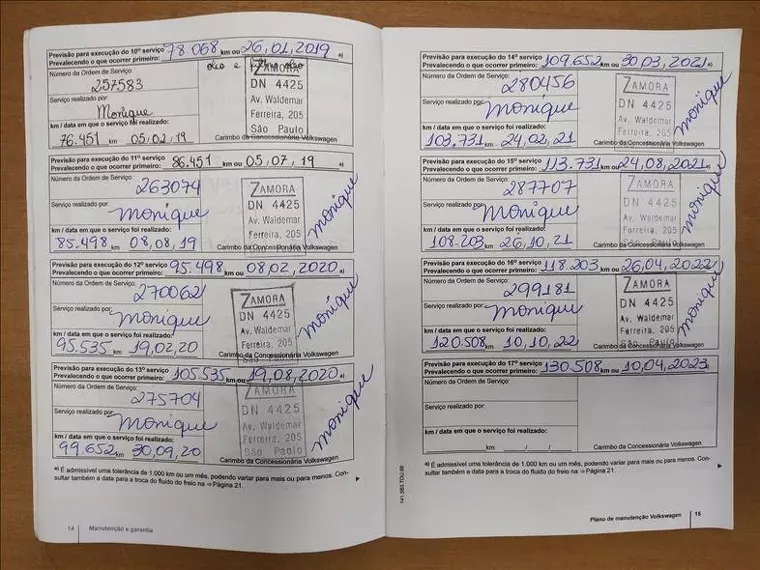 Previsão para execução do 10º serviço 78.068 km ou 26,01,2019
Prevalecendo o que ocorrer primeiro: a)
Número da Ordem de Serviço: óleo e filtro óleo
257583
ZAMORA
DN 4425
Av. Waldemar
Ferreira, 205
São Paulo
Serviço realizado por:
Monique
km / data em que o serviço foi realizado:
76.451 km 05,02,19
Carimbo da Concessionária Volkswagen
Previsão para execução do 11º serviço 86.451 km ou 05,07,19
Prevalecendo o que ocorrer primeiro: a)
Número da Ordem de Serviço:
263074
ZAMORA
DN 4425
Av. Waldemar
Ferreira, 205
São Paulo
monique
Serviço realizado por:
monique
km / data em que o serviço foi realizado:
85.498 km 08,08,19
Carimbo da Concessionária Volkswagen
Previsão para execução do 12º serviço 95.498 km ou 08,02,2020
Prevalecendo o que ocorrer primeiro: a)
Número da Ordem de Serviço:
270062
ZAMORA
DN 4425
Av. Waldemar
Ferreira, 205
São Paulo
monique
Serviço realizado por:
monique
km / data em que o serviço foi realizado:
95.535 km 19,02,20
Carimbo da Concessionária Volkswagen
Previsão para execução do 13º serviço 105.535 km ou 19,08,2020
Prevalecendo o que ocorrer primeiro: a)
Número da Ordem de Serviço:
275704
ZAMORA
DN 4425
Av. Waldemar
Ferreira, 205
São Paulo
monique
Serviço realizado por:
monique
km / data em que o serviço foi realizado:
99.652 km 30,09,20
Carimbo da Concessionária Volkswagen
a) É admissível uma tolerância de 1.000 km ou um mês, podendo variar para mais ou para menos. Con-
sultar também a data para a troca do fluido do freio na ⇒Página 21.
14 Manutenção e garantia
Previsão para execução do 14º serviço 109.652 km ou 30.03,2021
Prevalecendo o que ocorrer primeiro: a)
Número da Ordem de Serviço:
280456
ZAMORA
DN 4425
Av. Waldemar
Ferreira, 205
São Paulo
monique
Serviço realizado por:
monique
km / data em que o serviço foi realizado:
103.731 km 24,02,21
Carimbo da Concessionária Volkswagen
Previsão para execução do 15º serviço 113.731 km ou 24,08,2021
Prevalecendo o que ocorrer primeiro: a)
Número da Ordem de Serviço:
287707
ZAMORA
DN 4425
Av. Waldemar
Ferreira, 205
São Paulo
monique
Serviço realizado por:
monique
km / data em que o serviço foi realizado:
108.203 km 26,10,21
Carimbo da Concessionária Volkswagen
Previsão para execução do 16º serviço 118.203 km ou 26,04,2022
Prevalecendo o que ocorrer primeiro: a)
Número da Ordem de Serviço:
299181
ZAMORA
DN 4425
Av. Waldemar
Ferreira, 205
São Paulo
monique
Serviço realizado por:
monique
km / data em que o serviço foi realizado:
120.508 km 10,10,22
Carimbo da Concessionária Volkswagen
Previsão para execução do 17º serviço 130.508 km ou 10,04,2023
Prevalecendo o que ocorrer primeiro: a)
Número da Ordem de Serviço:
Serviço realizado por:
km / data em que o serviço foi realizado:
km / /
Carimbo da Concessionária Volkswagen
a) É admissível uma tolerância de 1.000 km ou um mês, podendo variar para mais ou para menos. Con-
sultar também a data para a troca do fluido do freio na ⇒Página 21.
Plano de manutenção Volkswagen 15